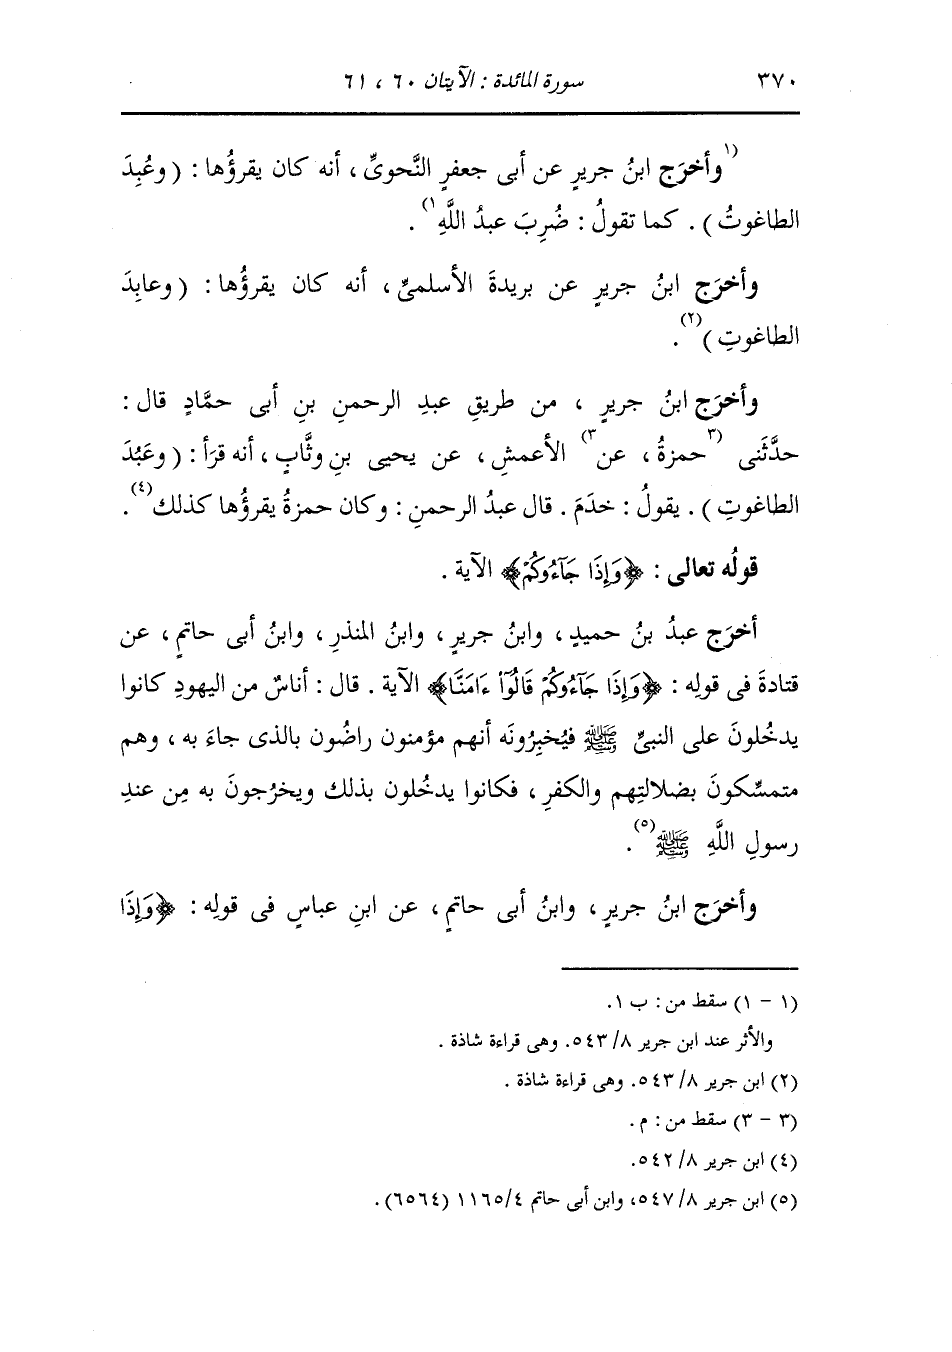 ٣٧٠ سورة المائدة : الآيتان ٦٠ ، ٦١
(١) وأخرَج ابنُ جريرٍ عن أبى جعفرٍ النَّحوىِّ ، أنه كان يقرؤُها : ( وعُبِدَ
الطاغوتُ ) . كما تقولُ : ضُرِبَ عبدُ اللَّهِ(١) .
وأخرَج ابنُ جريرٍ عن بريدةَ الأسلمىِّ ، أنه كان يقرؤُها : ( وعابِدَ
الطاغوتِ )(٢) .
وأخرَج ابنُ جريرٍ ، من طريقِ عبدِ الرحمنِ بنِ أبى حمَّادٍ قال :
حدَّثَنى (٣)حمزةُ ، عن(٣) الأعمشِ ، عن يحيى بنِ وثَّابٍ ، أنه قرَأ : ( وعَبُدَ
الطاغوتِ ) . يقولُ : خدَمَ . قال عبدُ الرحمنِ : وكان حمزةُ يقرؤُها كذلك(٤) .
قولُه تعالى : ﴿وَإِذَا جَآءُوكُمْ﴾ الآية .
أخرَج عبدُ بنُ حميدٍ ، وابنُ جريرٍ ، وابنُ المنذرِ ، وابنُ أبى حاتمٍ ، عن
قتادةَ فى قولِه : ﴿وَإِذَا جَآءُوكُمْ قَالُوٓا۟ ءَامَنَّا﴾ الآية . قال : أناسٌ من اليهودِ كانوا
يدخُلونَ على النبىِّ ﷺ فيُخبِرُونَه أنهم مؤمنون راضُون بالذى جاءَ به ، وهم
متمسِّكونَ بضلالتِهم والكفرِ ، فكانوا يدخُلون بذلك ويخرُجونَ به مِن عندِ
رسولِ اللَّهِ ﷺ(٥) .
وأخرَج ابنُ جريرٍ ، وابنُ أبى حاتمٍ ، عن ابنِ عباسٍ فى قولِه : ﴿وَإِذَا
(١ - ١) سقط من : ب ١.
والأثر عند ابن جرير ٨/ ٥٤٣. وهى قراءة شاذة .
(٢) ابن جرير ٨/ ٥٤٣. وهى قراءة شاذة .
(٣ - ٣) سقط من : م .
(٤) ابن جرير ٨/ ٥٤٢.
(٥) ابن جرير ٨/ ٥٤٧، وابن أبى حاتم ٤/ ١١٦٥ (٦٥٦٤) .